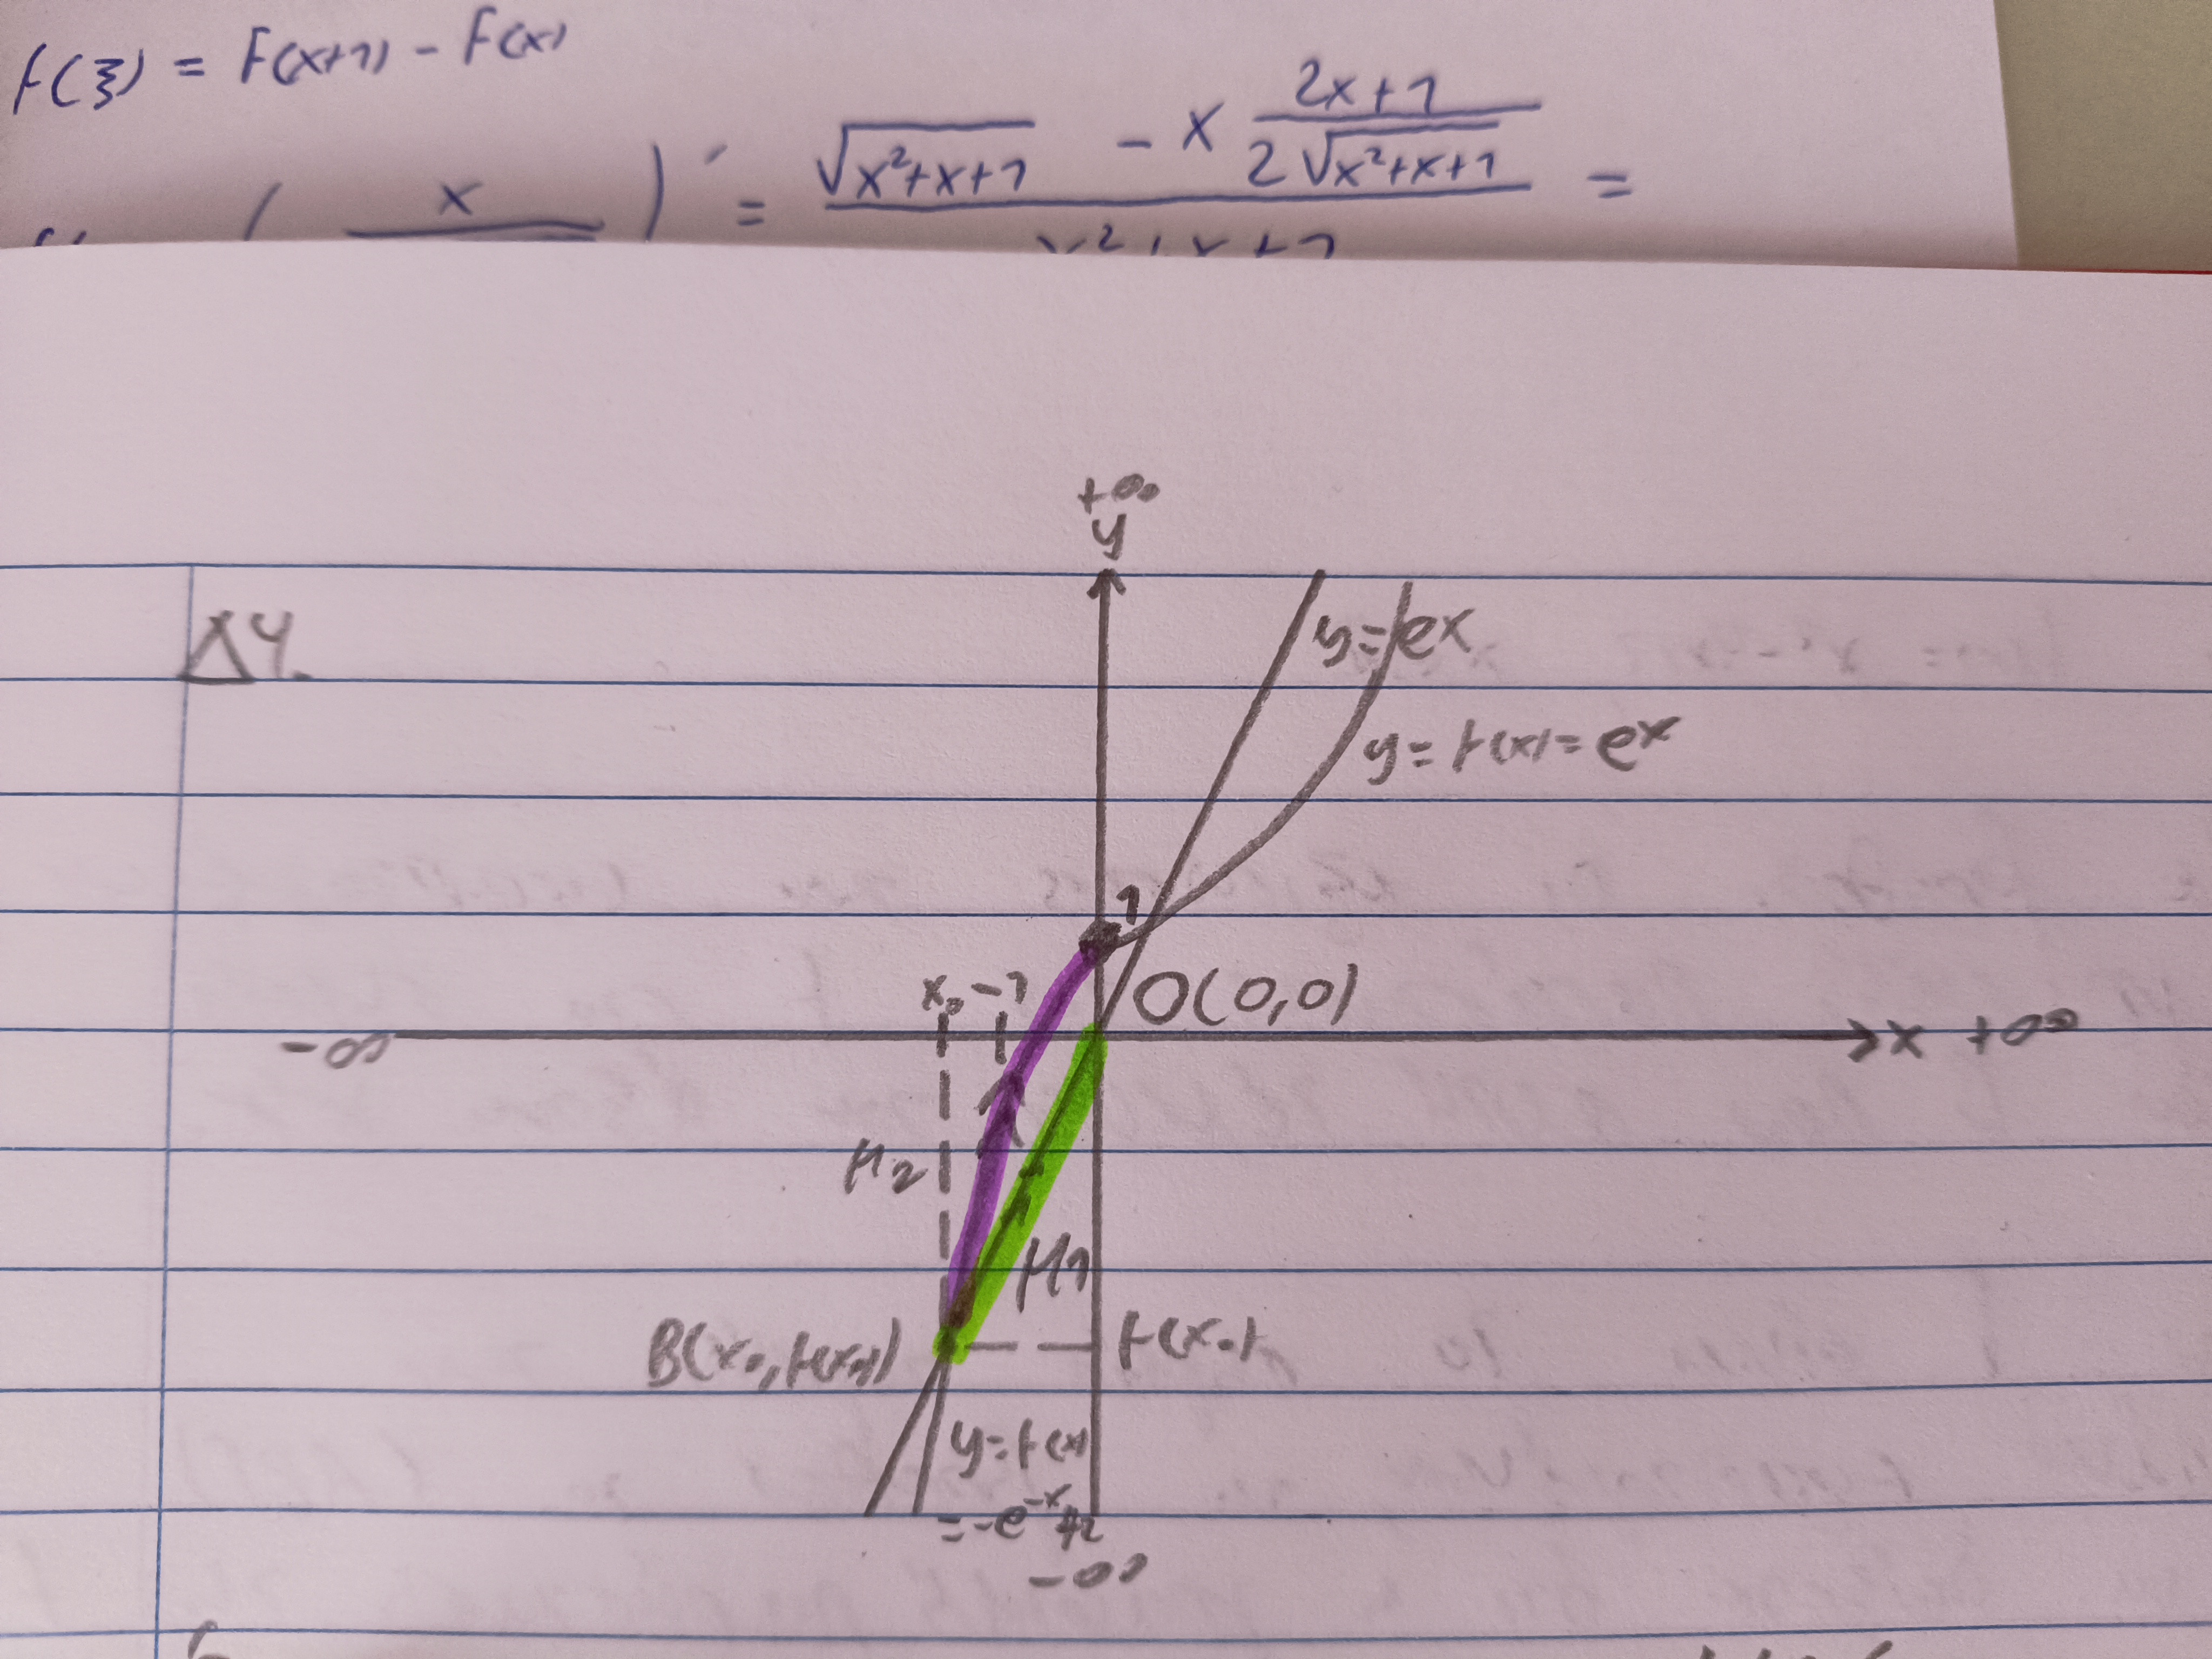 f(ξ) = F(x+1) - F(x)
( x ) ' = √x²+x+1 - x 2x+1 / 2√x²+x+1 =
x²+x+1
+∞
y
Δ4.
y=ex
y=f(x)=eˣ
1
x₀ -1
O(0,0)
-∞
x +∞
M₂
M₁
B(x₀,f(x₀))
f(x₀)
y=f(x)
=-e⁻ˣ+2
-∞